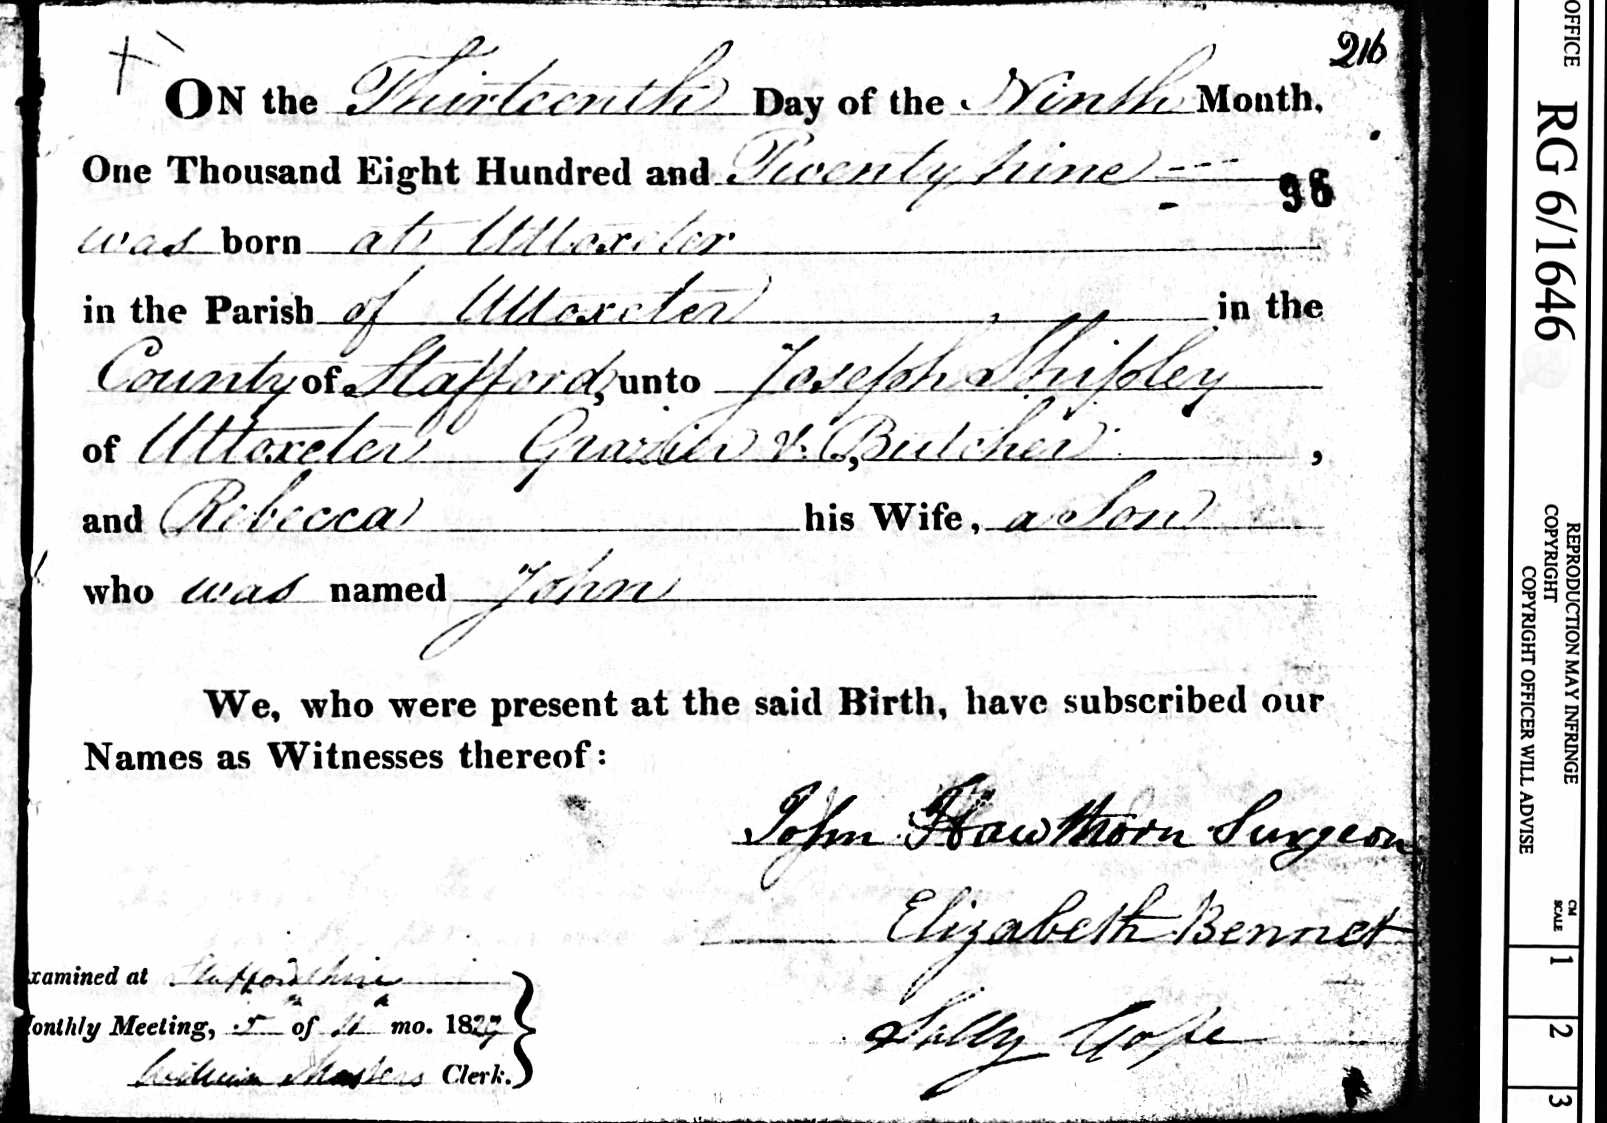 216
ON the Thirteenth Day of the Ninth Month,
One Thousand Eight Hundred and Twenty nine
96
was born at Uttoxeter
in the Parish of Uttoxeter in the
County of Stafford, unto Joseph Shipley
of Uttoxeter Grazier & Butcher ,
and Rebecca his Wife, a Son
who was named John
We, who were present at the said Birth, have subscribed our
Names as Witnesses thereof:
John Hawthorn Surgeon
Elizabeth Bennet
Sally Cope
xamined at Staffordshire
onthly Meeting, 5th of 11th mo. 1829
William Masters Clerk.
OFFICE
RG 6/1646
REPRODUCTION MAY INFRINGE
COPYRIGHT
COPYRIGHT OFFICER WILL ADVISE
CM
SCALE
1
2
3